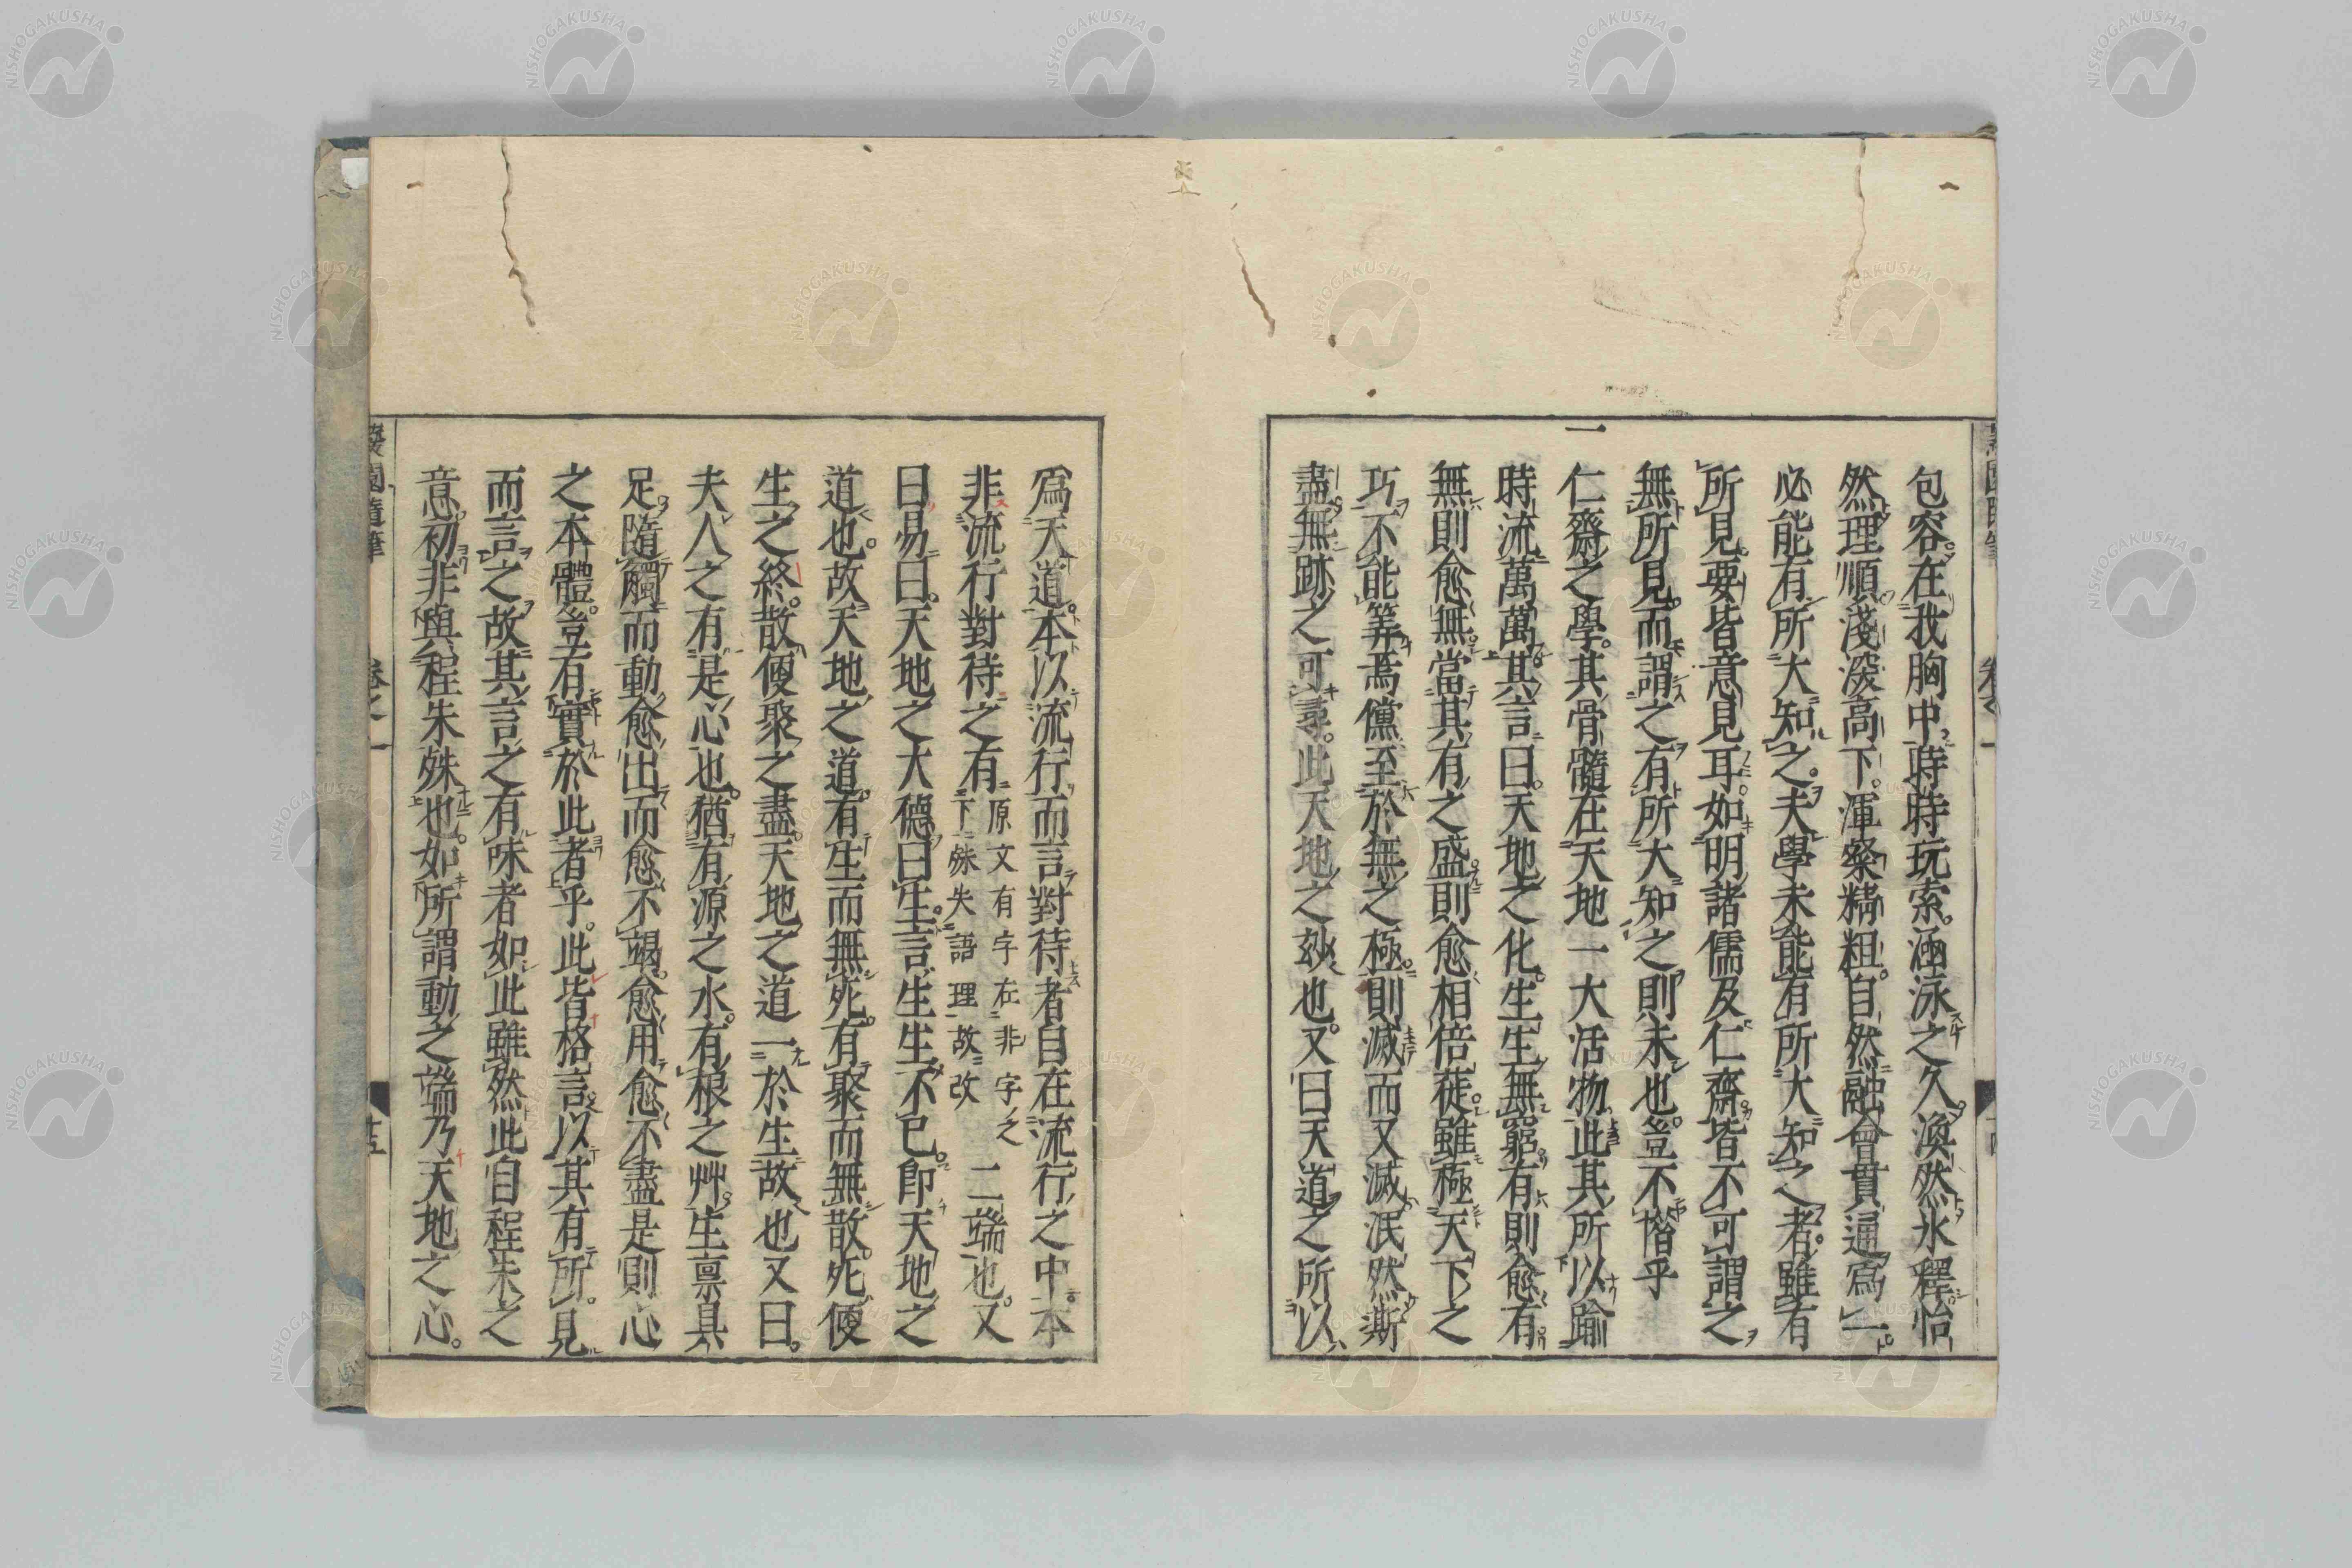 包容。在我胸中。時時玩索。涵泳之久。渙然氷釋。怡
然理順。淺深高下。渾粲精粗。自然融會貫通爲一。
必能有所大知之。夫學未能有所大知之者。雖有
所見。要皆意見耳。如明諸儒及仁齋。皆不可謂之
無所見。而謂之有所大知之則未也。豈不惜乎
一
仁齋之學。其骨髓在天地一大活物。此其所以踰
時流萬萬。其言曰。天地之化。生生無窮。有則愈有。
無則愈無。當其有之盛。則愈相倍蓰。雖極天下之
巧。不能筭焉。儻至於無之極。則滅而又滅。泯然澌
盡。無跡之可尋。此天地之玅也。又曰天道之所以
爲天道。本以流行而言。對待者自在流行之中。本
非流行對待之有
原文有字在非字之
下殊失語理故改
二端也。又
曰。易曰。天地之大德曰生。言生生不已。卽天地之
道也。故天地之道。有生而無死。有聚而無散。死便
生之終。散便聚之盡。天地之道一於生故也又曰。
夫人之有是心也。猶有源之水。有根之艸。生禀具
足。隨觸而動。愈出而愈不竭。愈用愈不盡是則心
之本體。豈有實於此者乎。此皆格言。以其有所見
而言之。故其言之有味者如此雖然此自程朱之
意。初非與程朱殊也。如所謂動之端乃天地之心。
蘐園隨筆
卷之一
十五
卷之一
NISHOGAKUSHA